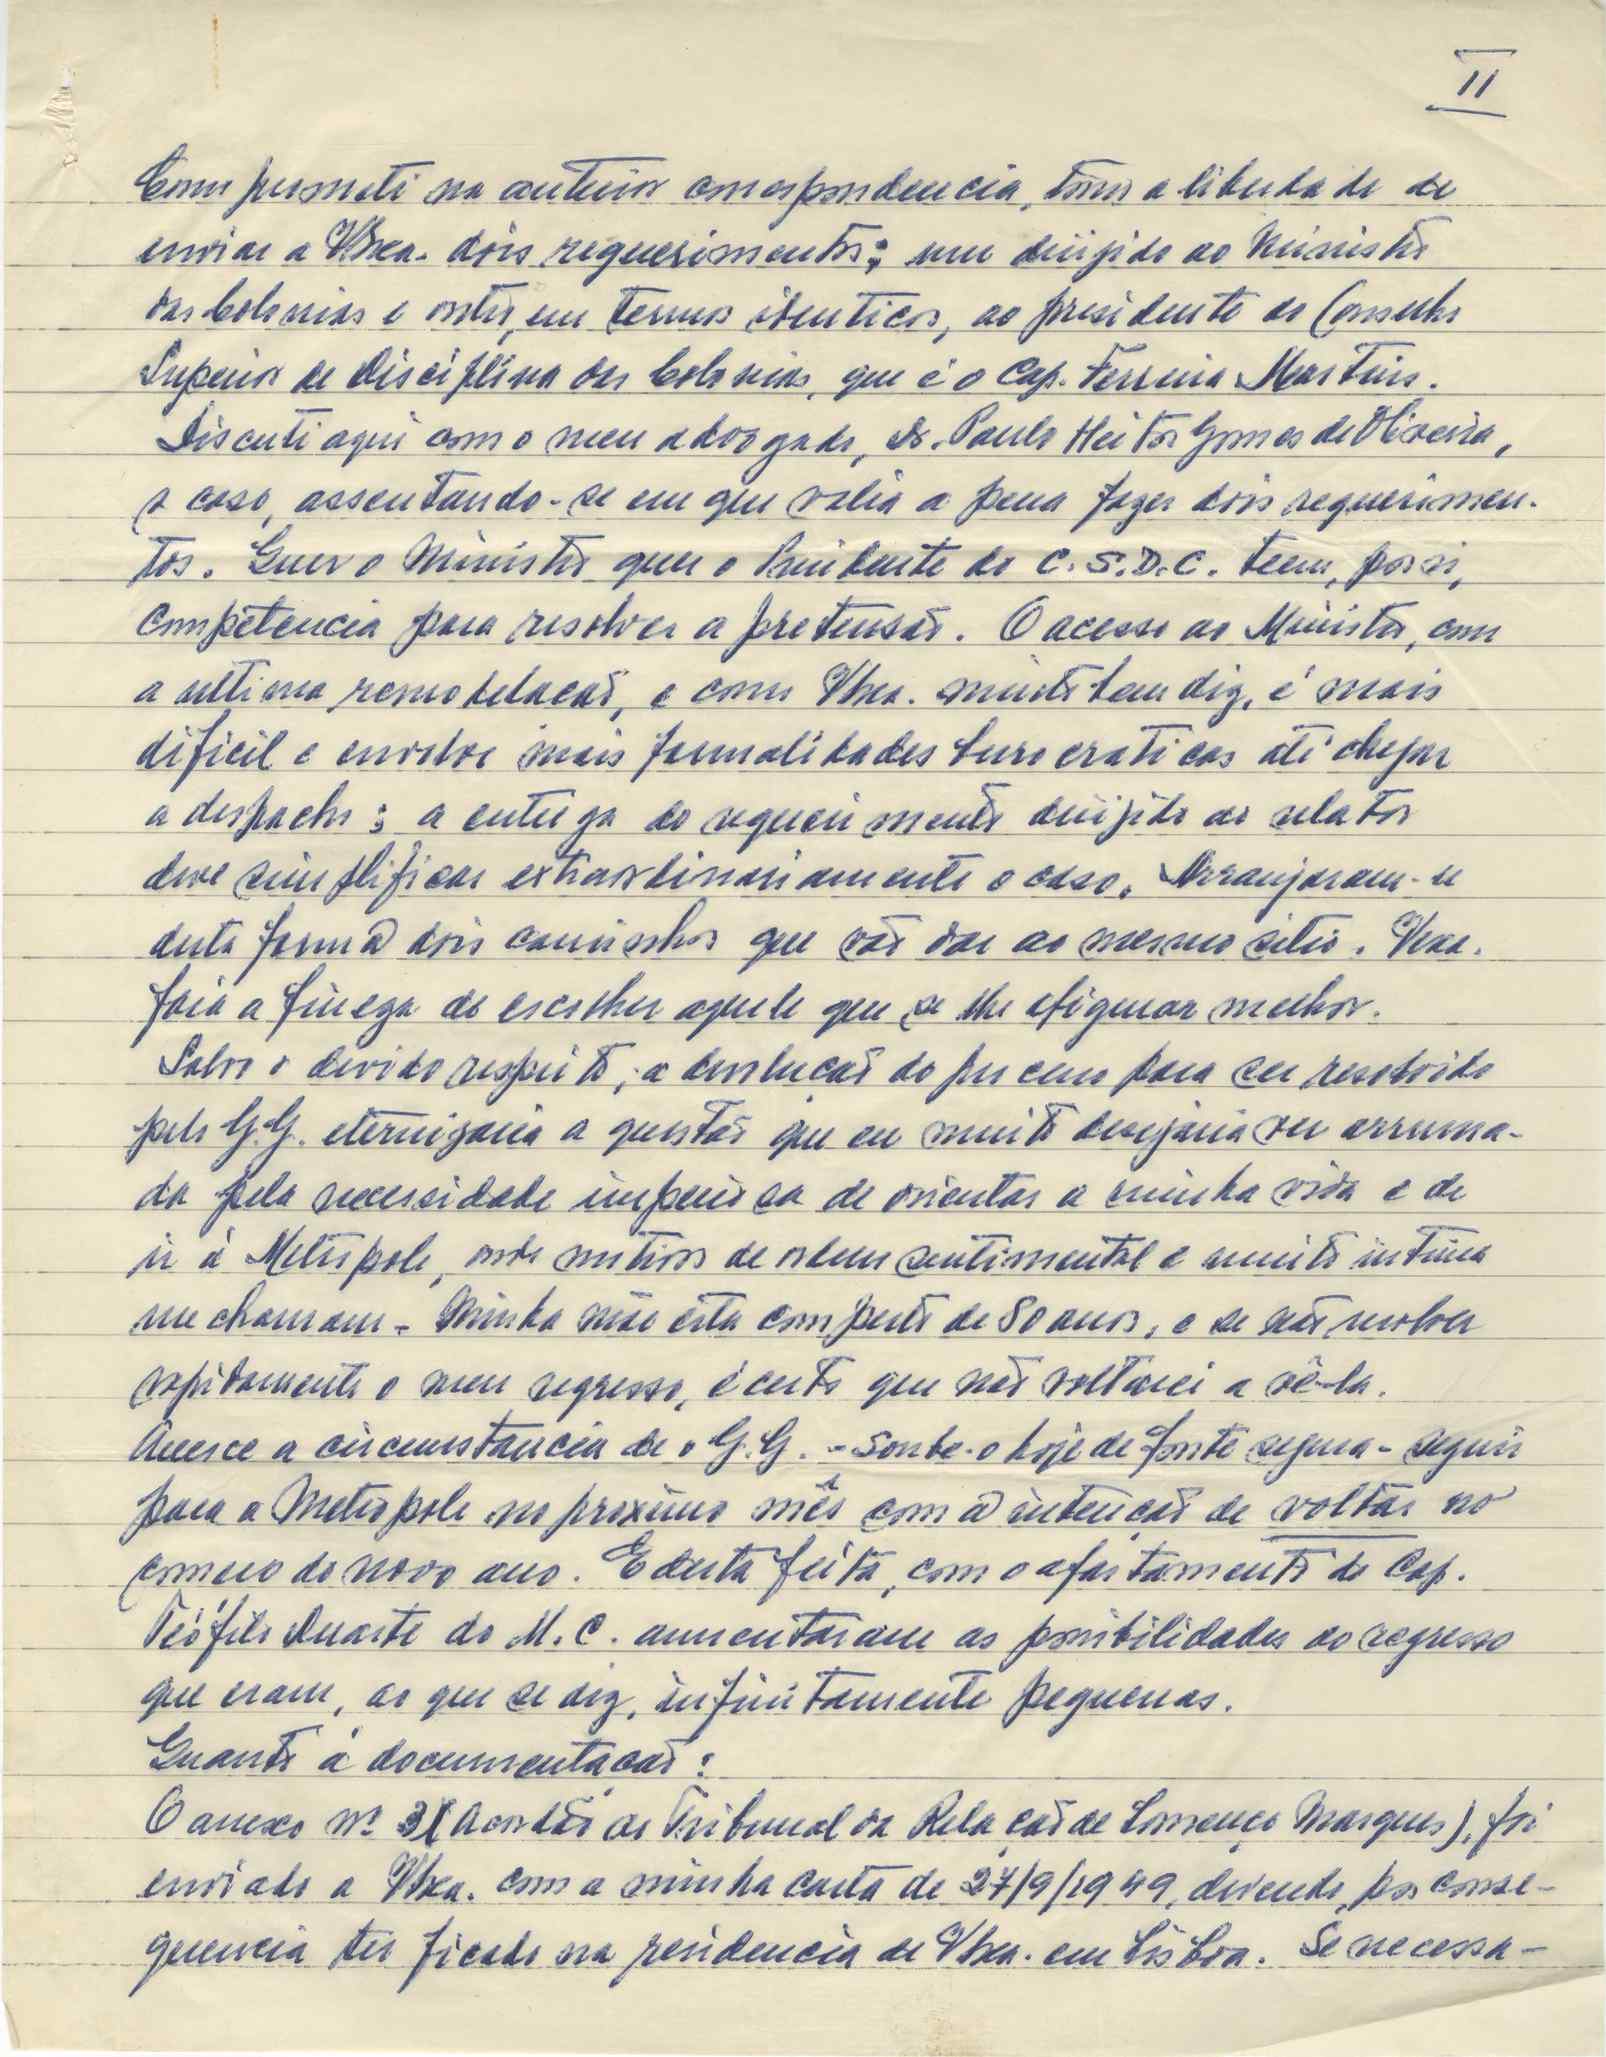 II
Como prometi na anterior correspondencia, tomo a liberdade de
enviar a VExa. dois requerimentos; um dirijido ao Ministro
das Colonias e outro, em termos identicos, ao presidente do Conselho
Superior de Disciplina das Colonias, que é o Cap. Ferreira Martins.
Discuti aqui com o meu advogado, Dr. Paulo Heitor Gomes de Oliveira,
o caso, assentando-se em que valia a pena fazer dois requerimen-
tos. Quer o Ministro quer o Presidente do C.S.D.C. teem, por si,
competencia para resolver a pretensão. O acesso ao Ministro, com
a ultima remodelacão, e como VExa. muito bem diz, é mais
dificil e envolve mais formalidades burocraticas até chegar
a despacho; a entrega do requerimento dirijido ao relator
deve simplificar extraordinariamente o caso. Arranjaram-se
desta forma dois caminhos que vão dar ao mesmo sitio. VExa.
fará a fineza de escolher aquele que se lhe afigurar melhor.
Salvo o devido respeito, a devolução do processo para ser resolvido
pelo G.G. eternizaria a questão que eu muito desejaria ver arruma-
da pela necessidade imperiosa de orientar a minha vida e de
ir á Metropole, onde motivos de ordem sentimental e muito intima
me chamam - Minha mãe está com perto de 80 anos, e se não resolver
rapidamente o meu regresso, é certo que não voltarei a vê-la.
Acresce a circumstancia de o G.G. - soube-o hoje de fonte segura - seguir
para a Metropole no proximo mês com a intenção de voltar no
começo do novo ano. E desta feita, com o afastamento do Cap.
Teófilo Duarte do M.C. aumentaram as possibilidades do regresso
que eram, ao que se diz, infinitamente pequenas.
Quanto á documentacão:
O anexo nº 3 (Acordão do Tribunal da Relação de Lourenço Marques), foi
enviado a VExa. com a minha carta de 27/9/1949, devendo, por conse-
quencia ter ficado na residencia de VExa. em Lisboa. Se necessa-